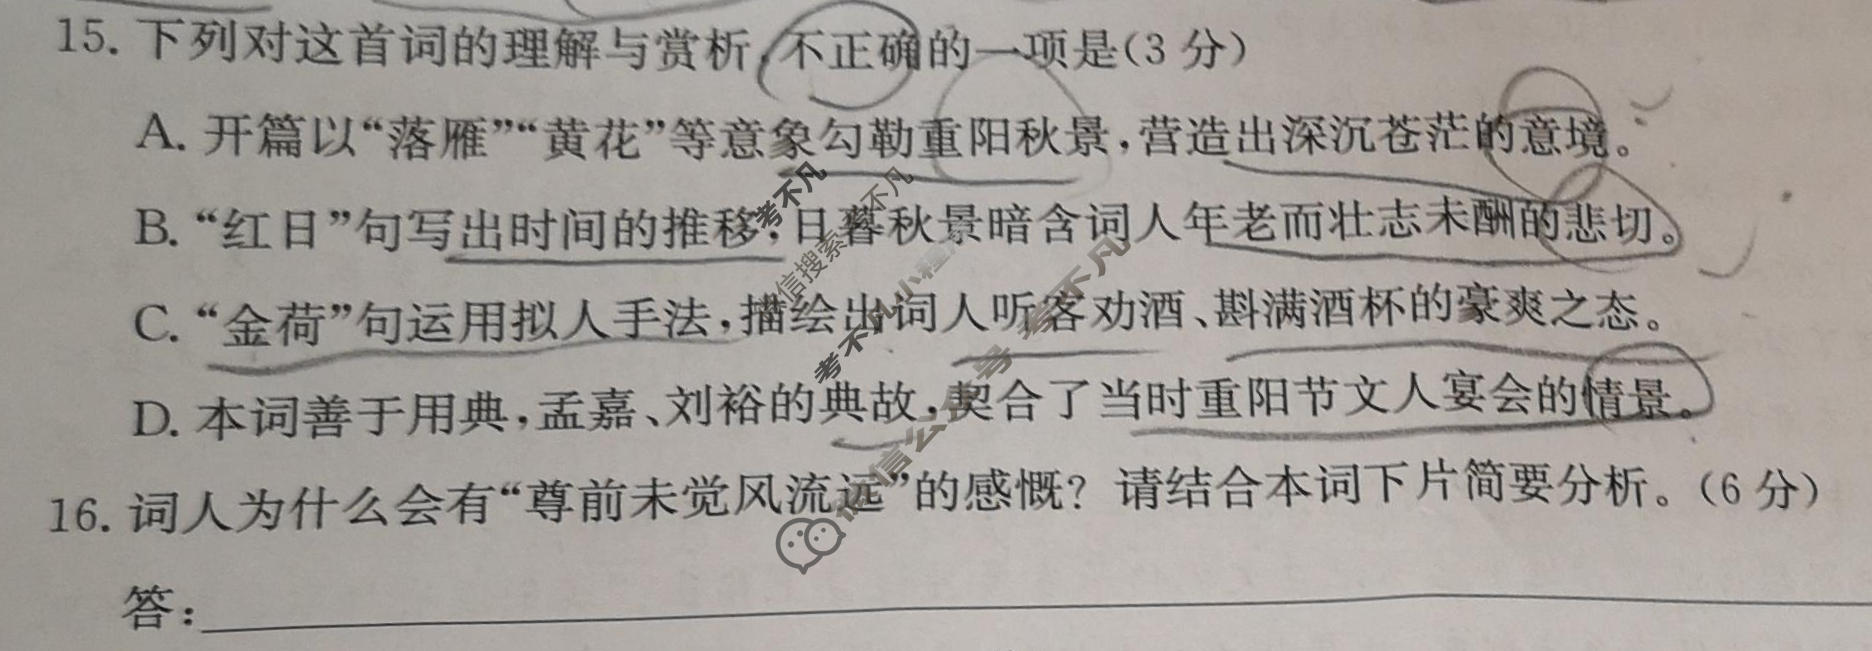 15. 下列对这首词的理解与赏析,不正确的一项是(3分)
A. 开篇以“落雁”“黄花”等意象勾勒重阳秋景,营造出深沉苍茫的意境。
B. “红日”句写出时间的推移,日暮秋景暗含词人年老而壮志未酬的悲切。
C. “金荷”句运用拟人手法,描绘出词人听客劝酒、斟满酒杯的豪爽之态。
D. 本词善于用典,孟嘉、刘裕的典故,契合了当时重阳节文人宴会的情景。
16. 词人为什么会有“尊前未觉风流远”的感慨? 请结合本词下片简要分析。(6分)
答:
考不凡
微信搜索
考不凡
考不凡
小程序
微信公众号
考不凡